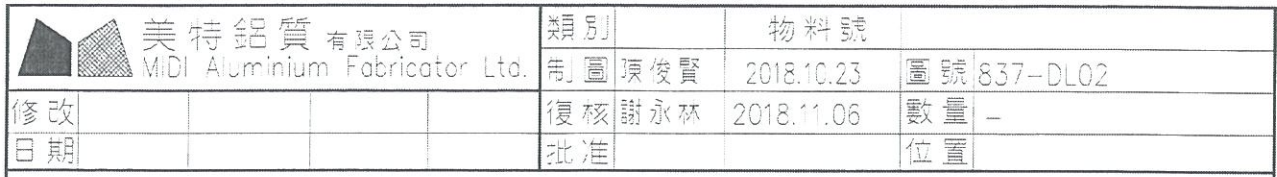 美特鋁質 有限公司
MIDI Aluminium Fabricator Ltd.
類別 物料號
制圖 陳俊賢 2018.10.23 圖號 837-DL02
修改 復核 謝永林 2018.11.06 數量 -
日期 批准 位置